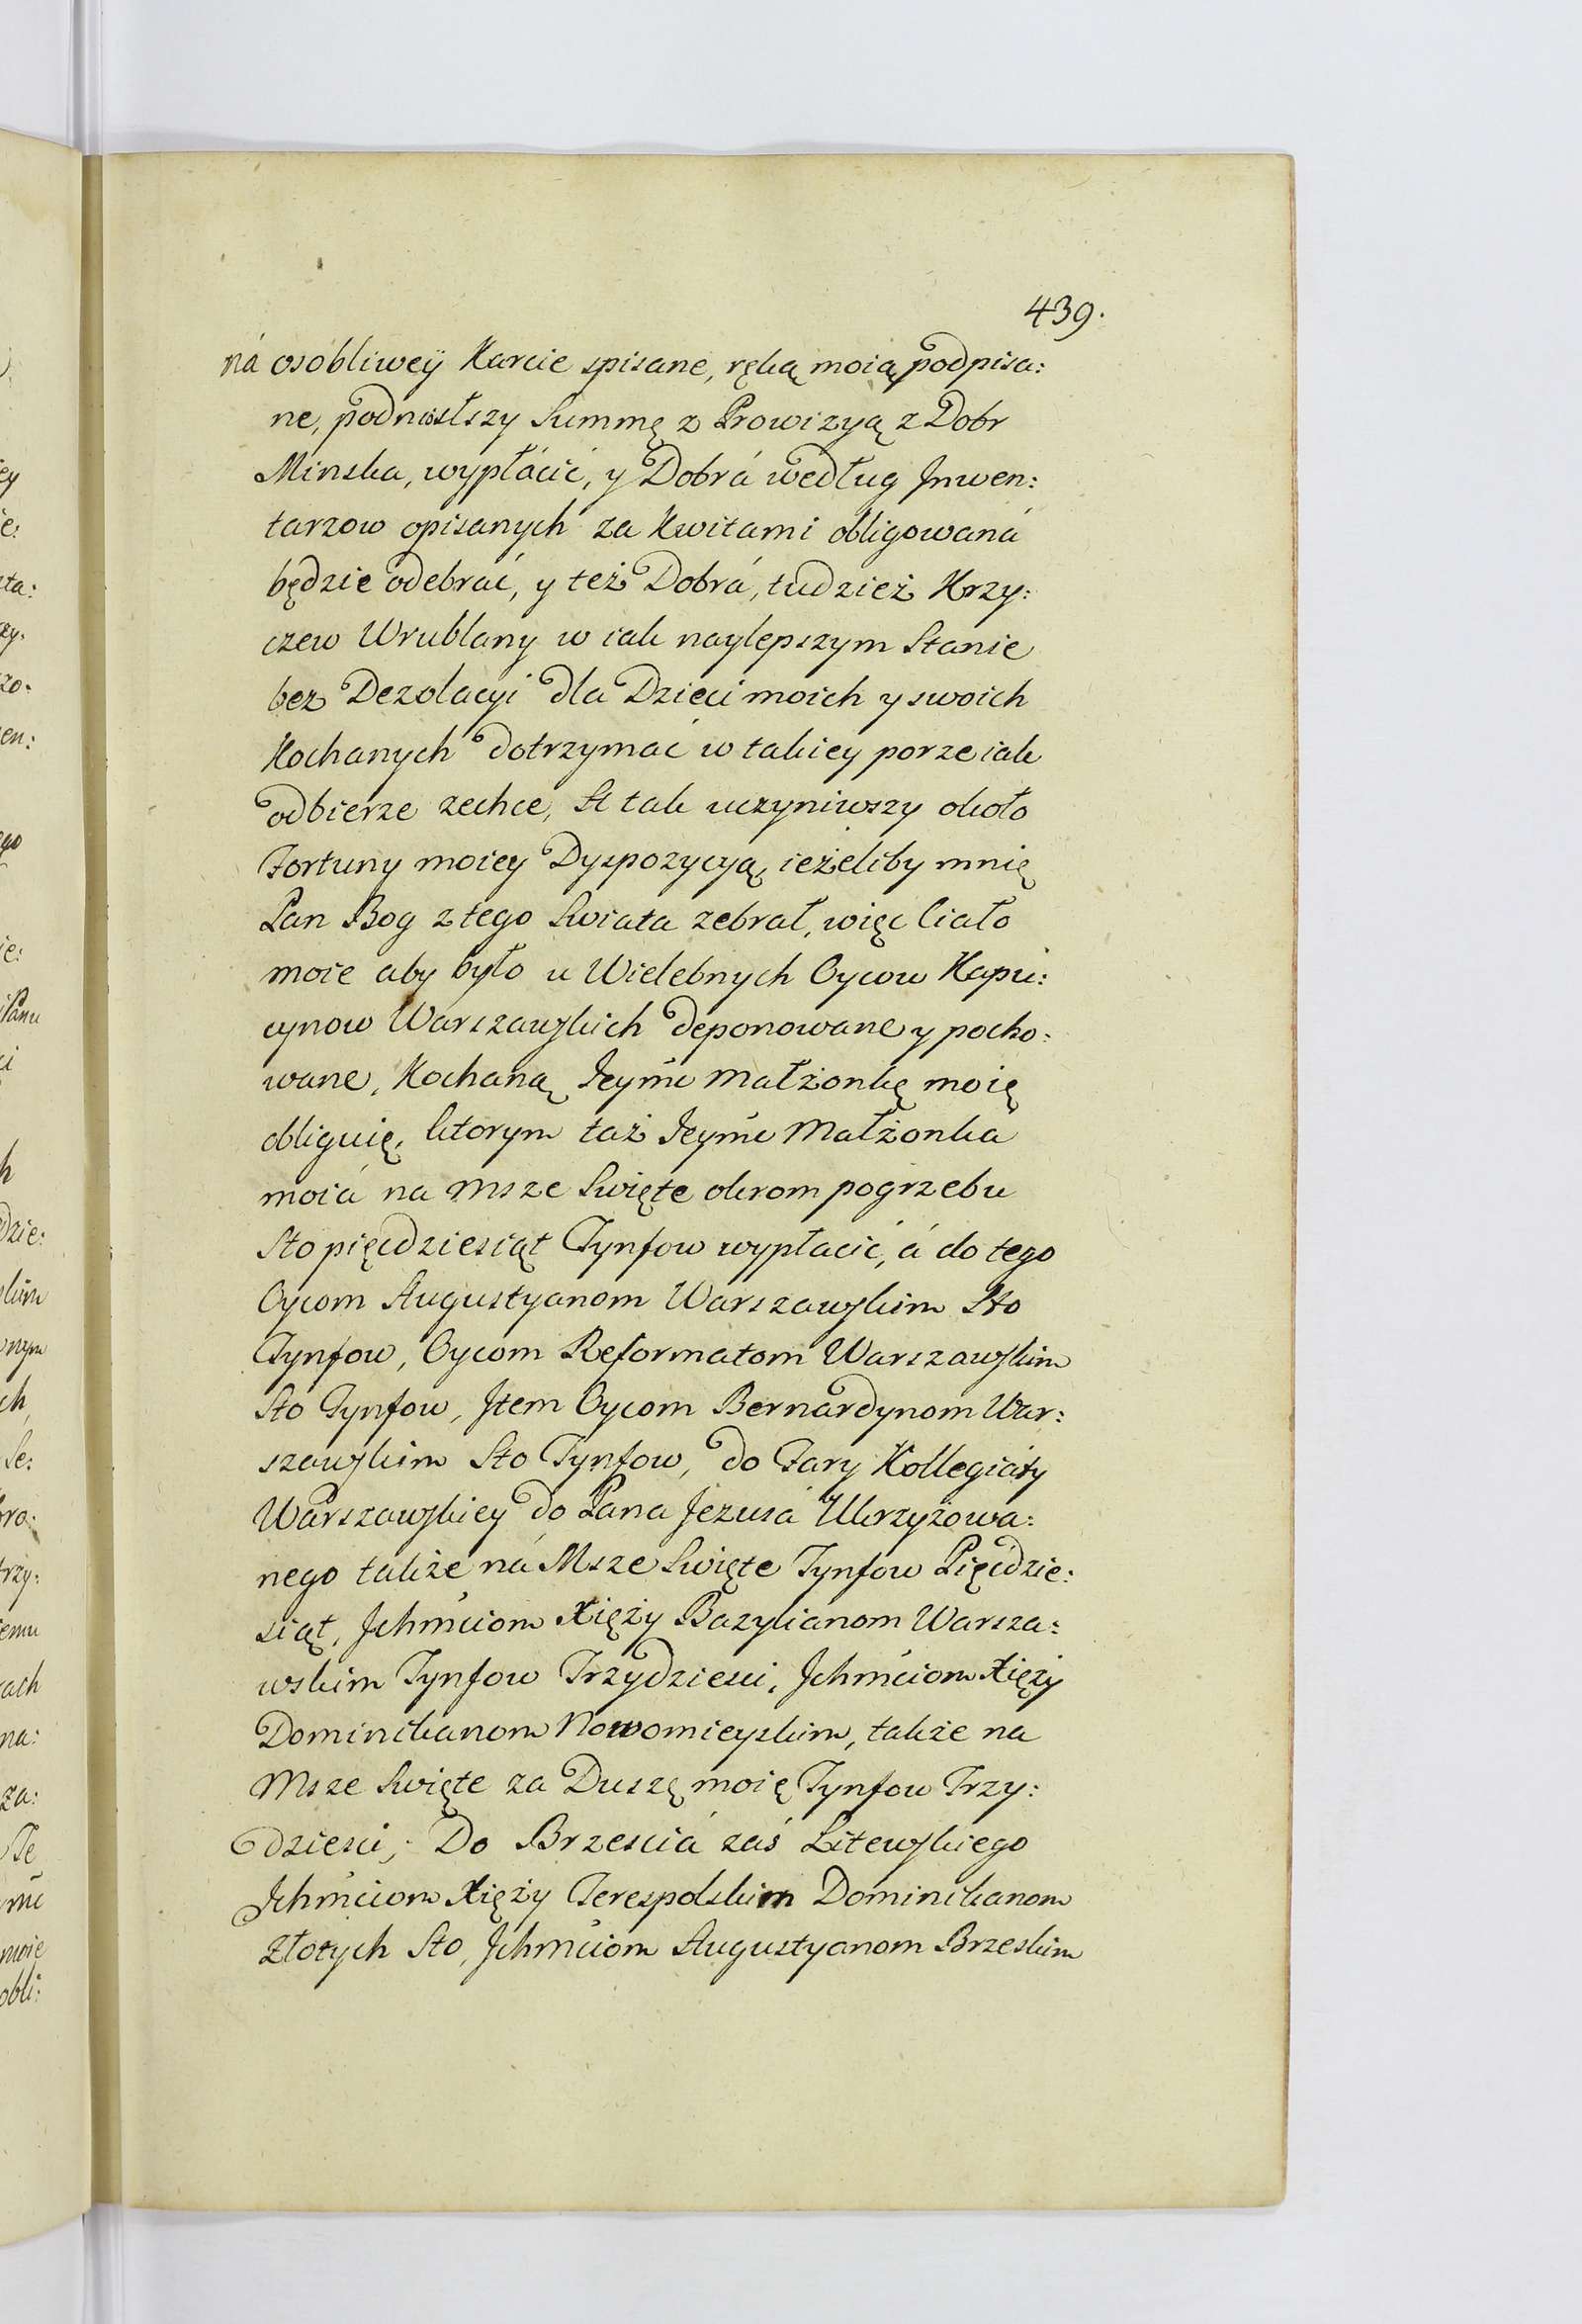 439.
ná osobliwey Karcie spisane, ręką moią podpisa:
ne, podniosłszy Summę z Prowizyą z Dobr
Minska, wypłácić, y Dobrá według Jnwen:
tarzow opisanych za Kwitami obligowaná
będzie odebrać, y też Dobrá, tudzież Krzy:
czew Wrublany w iak naylepszym Stanie
bez Dezolacyi dla Dzieci moich y swoich
Kochanych dotrzymać w takiey porze iak
odbierze zechce, A tak uczyniwszy około
Fortuny moiey Dyspozycyą, ieżeliby mnię
Pan Bog z tego Swiata zebrał, więc Ciało
moie aby było u Wielebnych Oycow Kapu:
cynow Warszawskich deponowane y pocho:
wane, Kochaną Jeymć Małżonkę moię
obliguię, ktorym taż Jeymć Małżonka
moiá na Msze Swięte okrom pogrzebu
Sto pięćdziesiąt Tynfow wypłacić, á do tego
Oycom Augustyanom Warszawskim Sto
Tynfow, Oycom Reformatom Warszawskim
Sto Tynfow, Jtem Oycom Bernardynom War:
szawskim Sto Tynfow, do Fary Kollegiaty
Warszawskiey do Pana Jezusá Ukrzyżowa:
nego także ná Msze Swięte Tynfow Pięćdzie:
siąt, Jchmćiom Xięży Bazylianom Warsza:
wskim Tynfow Trzydziesci, Jchmćiom Xięży
Dominikanom Nowomieyskim, także na
Msze Swięte za Duszę moię Tynfow Trzy:
dziesci, Do Brzesciá zaś Litewskiego
Jchmćiom Xięży Terespolskim Dominikanom
Złotych Sto, Jchmćiom Augustyanom Brzeskim